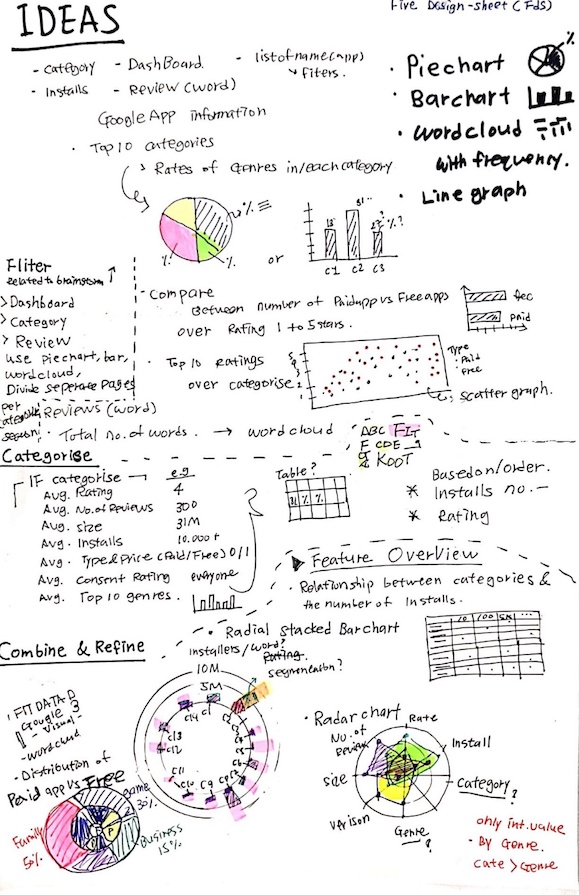 IDEAS
Five Design-sheet (FdS)
- Category - DashBoard. - list of name (app)
↳ fiters.
- Installs - Review (word)
Google App information
· Top 10 categories
↳ Rates of Genres in/each category
· Piechart %
· Barchart
· wordcloud
with frequency.
· Line graph
% % %
or
C1 C2 C3
Fliter
Related to brainstorm ↑
> Dashboard
> Category
> Review
use piechart, bar,
wordcloud,
Divide seperate pages
per
categorise
season
- Compare
Between number of Paid app vs Free apps
over Rating 1 to 5 stars.
paid
· Top 10 Ratings
over categorise
Type
· Paid
· Free
scatter graph.
Reviews (word)
· Total no. of words. → word cloud
ABC FIT
KOOT
Categorise
IF categorise → e.g
Avg. Rating 4
Avg. No. of Reviews 300
Avg. size 31M
Avg. Installs 10.000+
Avg. Type & Price (Paid/Free) 0/1
Avg. Consent Rating everyone
Avg. Top 10 genres.
Table?
% %
Based on/order.
* Installs no. -
* Rating
▶ Feature Overview
· Relationship between categories &
the number of Installs.
10 100 5M ...
Combine & Refine
· Radial Stacked Barchart
Installers/word?
Rating.
segmeneation?
10M
5M
C1 C2 C3 C4 C5 C6 C7 C8 C9 C10 C11 C12 C13 C14
! FIT DATA D
Google 3
- Visual -
- wordcloud
- Distribution of
Paid app vs Free
game
30%
Family
50%
Business
15%
P P
· Radar chart
Rate
No. of
Review
Install
size
Category?
Verison
Genre?
only int. value
· By Genre.
Cate > Genre